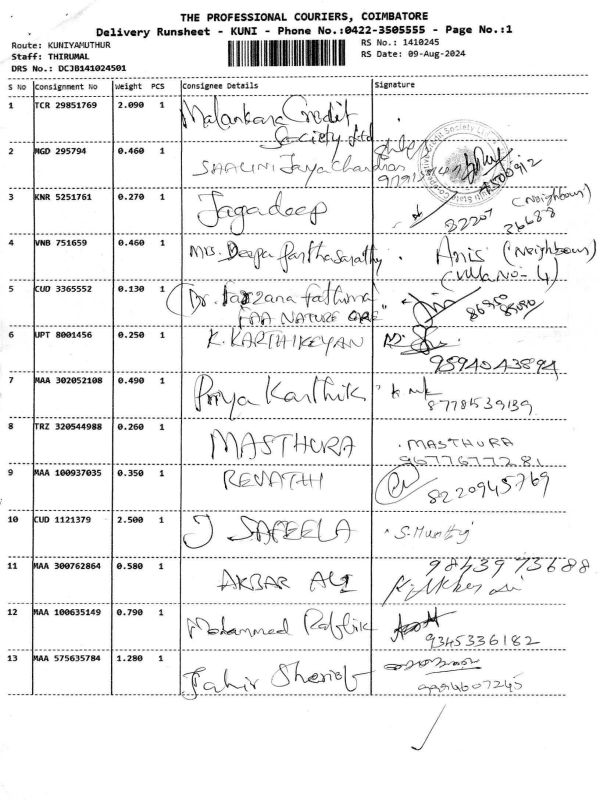 THE PROFESSIONAL COURIERS, COIMBATORE
Delivery Runsheet - KUNI - Phone No.:0422-3505555 - Page No.:1
Route: KUNIYAMUTHUR
Staff: THIRUMAL
DRS No.: DCJB141024501
RS No.: 1410245
RS Date: 09-Aug-2024
S No Consignment No Weight PCS Consignee Details Signature
1 TCR 29851769 2.090 1 Malankara Credit
Society Ltd
2 MGD 295794 0.460 1 SHALINI Jaya Chandran
3 KNR 5251761 0.270 1 Jagadeep (Neighbour)
4 VNB 751659 0.460 1 Mrs. Deepa Parthasarathy. Anis (Neighbour)
(Villa No- 4)
5 CUD 3365552 0.130 1 (Dr. Farzana fathima
FAA NATURE CARE"
6 UPT 8001456 0.250 1 K. KARTHIKEYAN
9594043894
7 MAA 302052108 0.490 1 Priya Karthik
8778539139
8 TRZ 320544988 0.260 1 MASTHURA . MASTHURA
9677677281
9 MAA 100937035 0.350 1 REVATHI
8220945769
10 CUD 1121379 2.500 1 J SAFEELA S. Murthy
11 MAA 300762864 0.580 1 AKBAR ALI 9843973688
12 MAA 100635149 0.790 1 Mohammed Raffik
9345336182
13 MAA 575635784 1.280 1 Jahir Sherief
9994607245